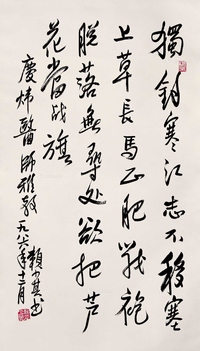 獨釣寒江志不移塞
上草長馬正肥戰袍
脫落無尋处欲把芦
花當战旗
慶炜醫師雅教
一九八六年十二月
賴少其书